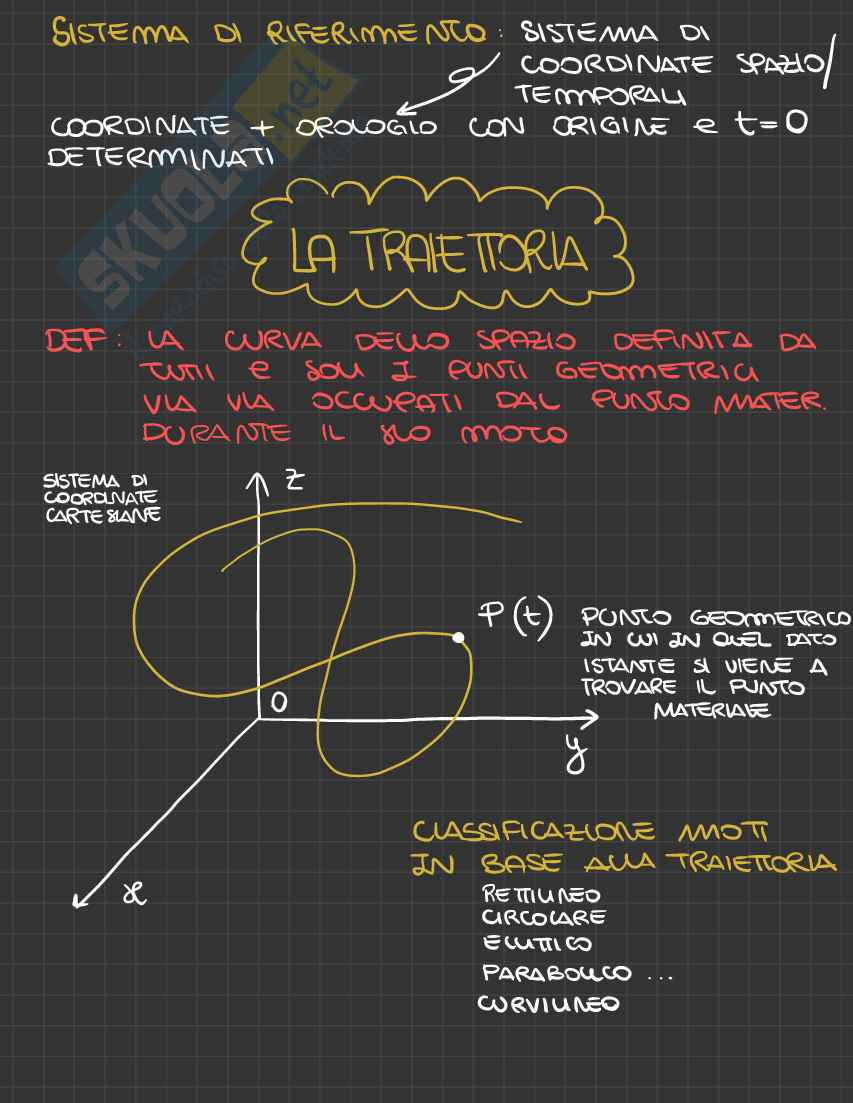 SISTEMA DI RIFERIMENTO: SISTEMA DI
COORDINATE SPAZIO/
TEMPORALI
COORDINATE + OROLOGIO CON ORIGINE e t=0
DETERMINATI
SKUOLA.net
LA TRAIETTORIA
DEF: LA CURVA DELLO SPAZIO DEFINITA DA
TUTTI e SOLI I PUNTI GEOMETRICI
VIA VIA OCCUPATI DAL PUNTO MATER.
DURANTE IL SUO MOTO
SISTEMA DI
COORDINATE
CARTESIANE
z
P(t)
PUNTO GEOMETRICO
IN CUI IN QUEL DATO
ISTANTE SI VIENE A
TROVARE IL PUNTO
MATERIALE
O
y
x
CLASSIFICAZIONE MOTI
IN BASE ALLA TRAIETTORIA
RETTILINEO
CIRCOLARE
ELLITTICO
PARABOLICO ...
CURVILINEO